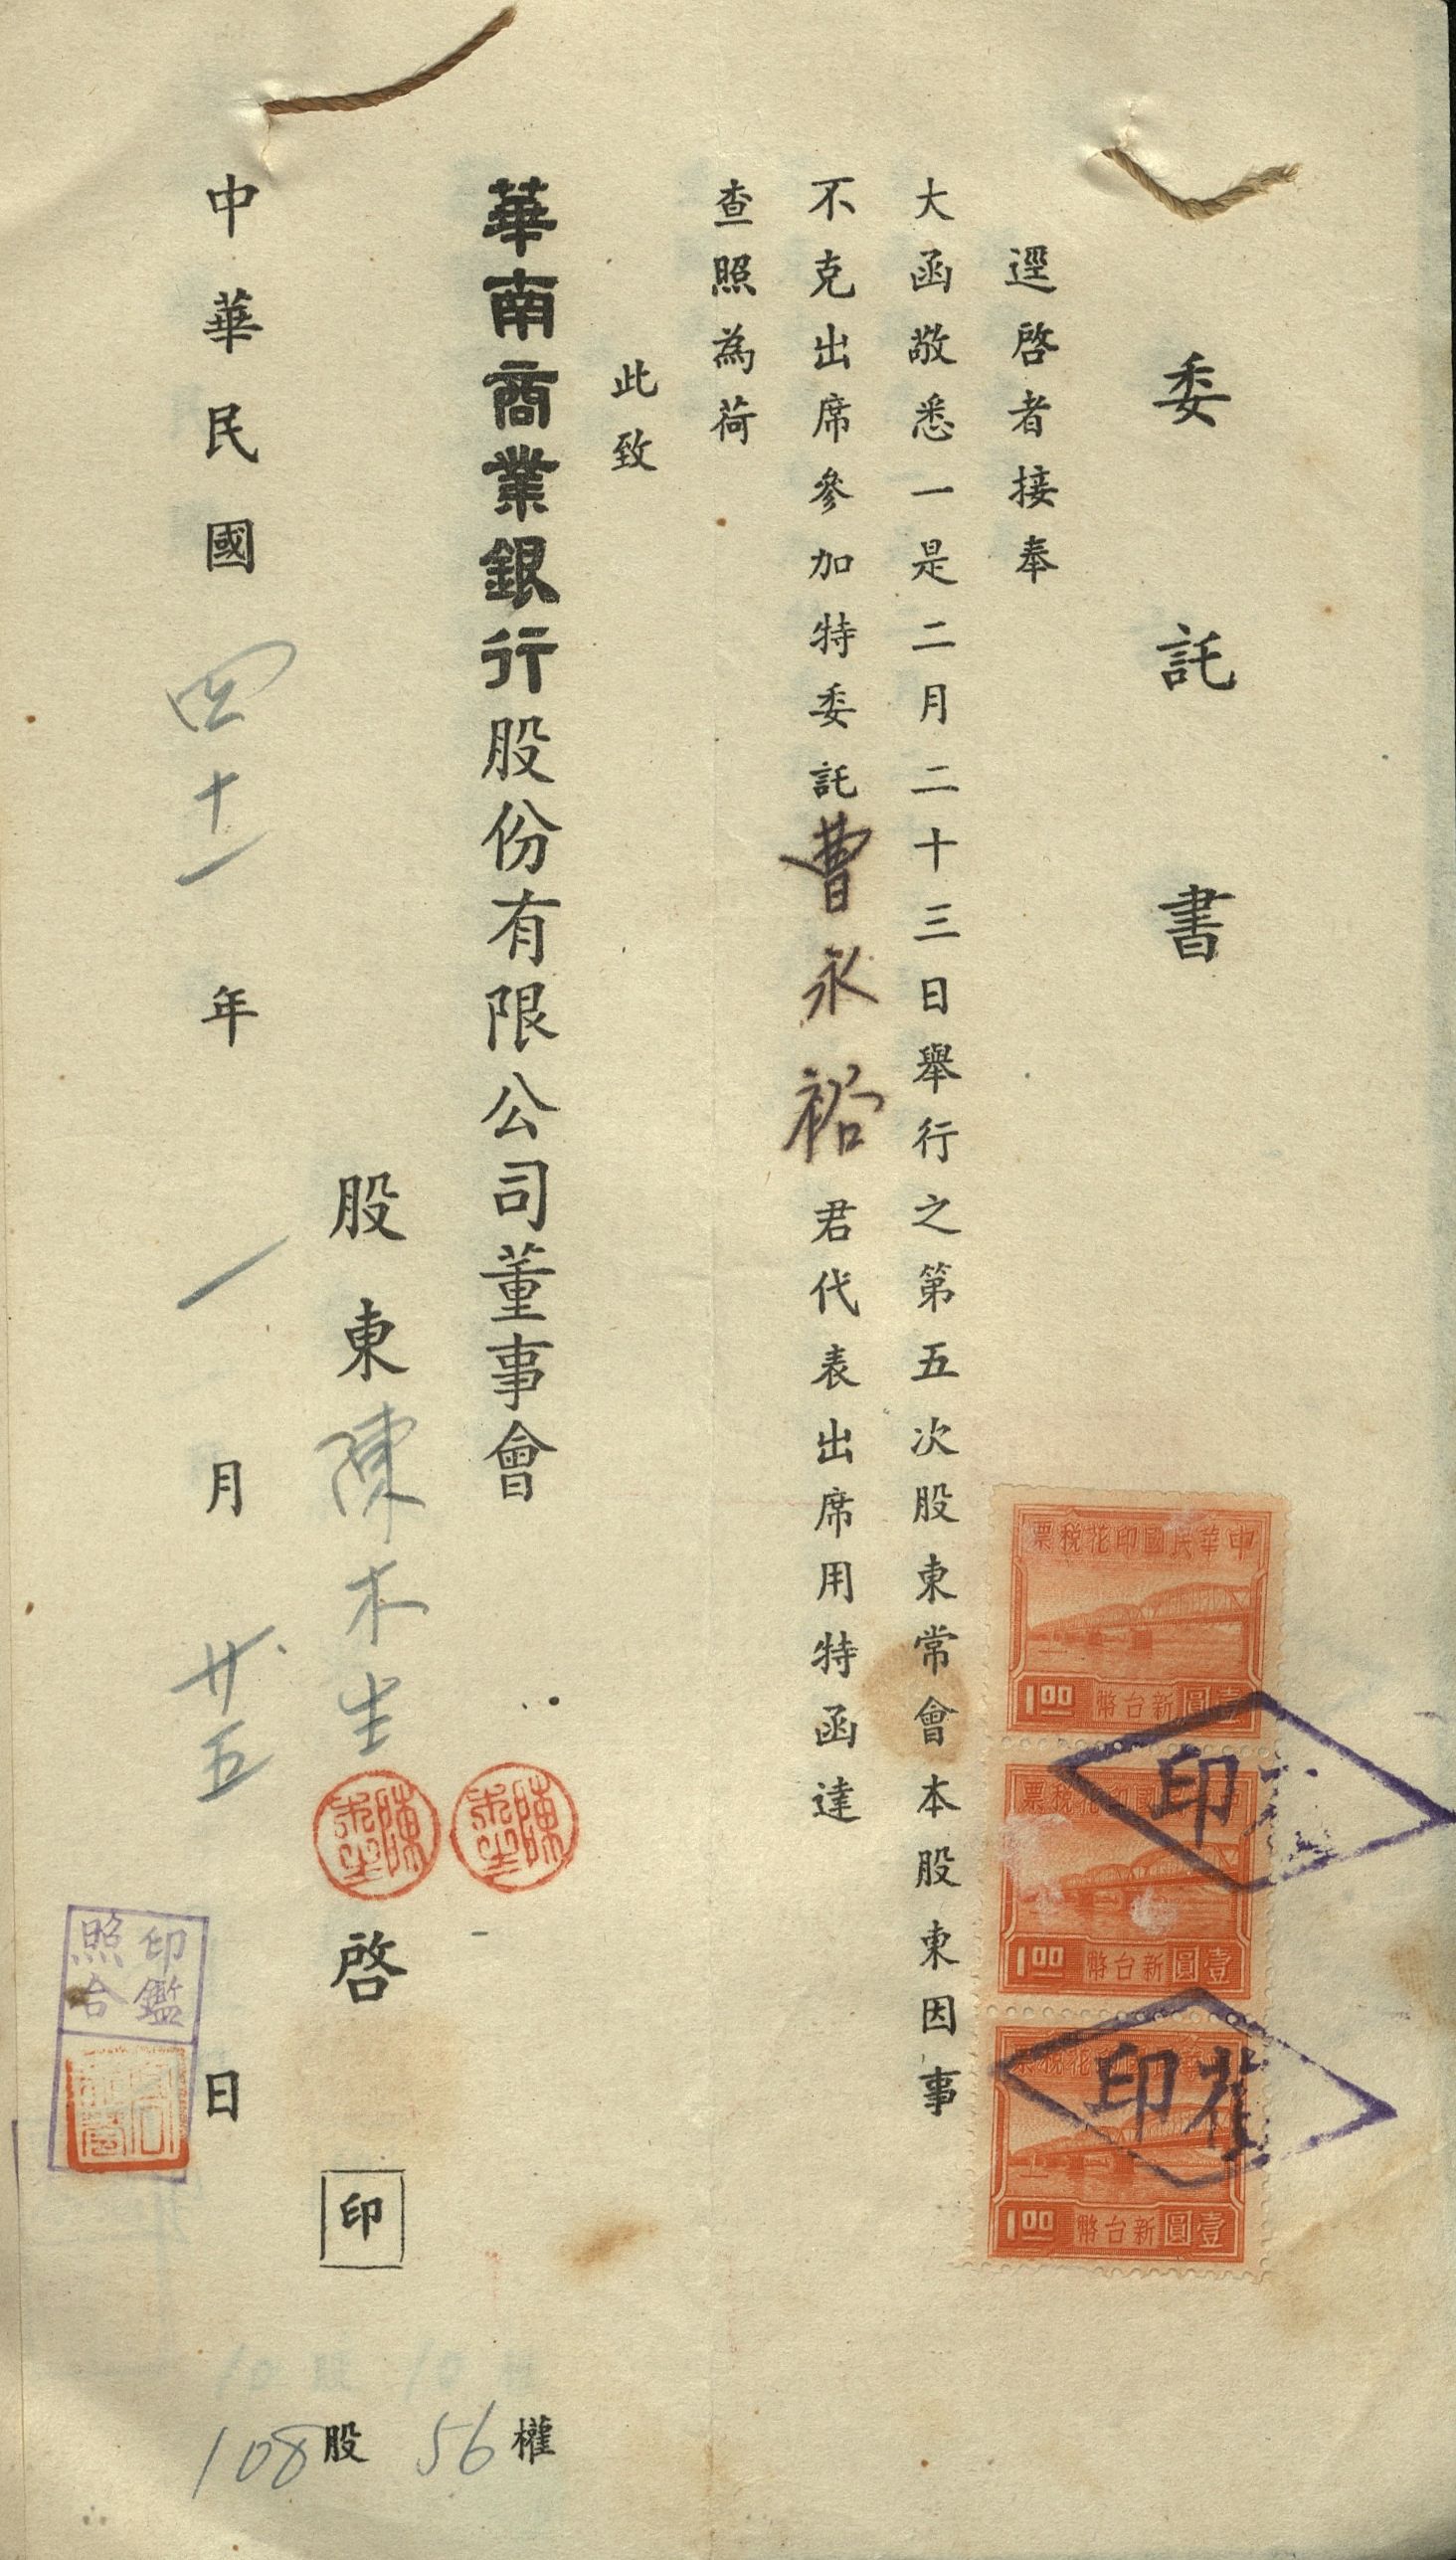 委託書
逕啓者接奉
大函敬悉一是二月二十三日舉行之第五次股東常會本股東因事
不克出席參加特委託曹永裕君代表出席用特函達
查照為荷
此致
華南商業銀行股份有限公司董事會
股東陳木生啓印
中華民國四十一年一月廿五日
108股56權
中華民國印花稅票
1.00
壹圓新台幣
1.00
壹圓新台幣
1.00
壹圓新台幣
印
印花
印鑑
照合